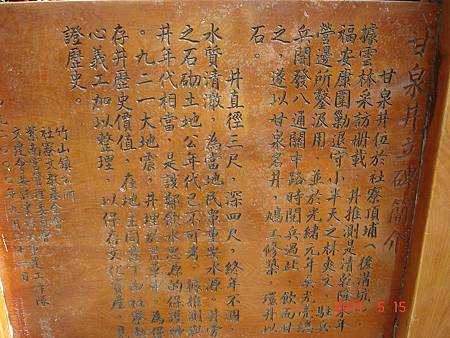 甘泉井立碑簡介
甘泉井位於社寮頂埔（後溝坑
據雲林采訪冊載，井推測是清乾隆末年
福安康圍勦退守小半天之林爽文，駐兵
營邊所鑿汲用，並於光緒元年吳光亮總
兵開發八通關中路時閱兵過此，飲而甘
之，遂以甘泉名井，鳩工修築，環井以
石。
井直徑三尺，深四尺，終年不涸，
水質清澈，為當地民眾重要水源。井旁
之石砌土地公年代已不可考，據推測與
井年代相當，是該鄰飲水思源的保護神
。九二一大地震，井埋於當中。為保
存井歷史價值，在地主同意下由社寮
心義工加以整理，以保存文化資產，見
證歷史。
竹山鎮公所
社寮文教基金會
2011 5 15